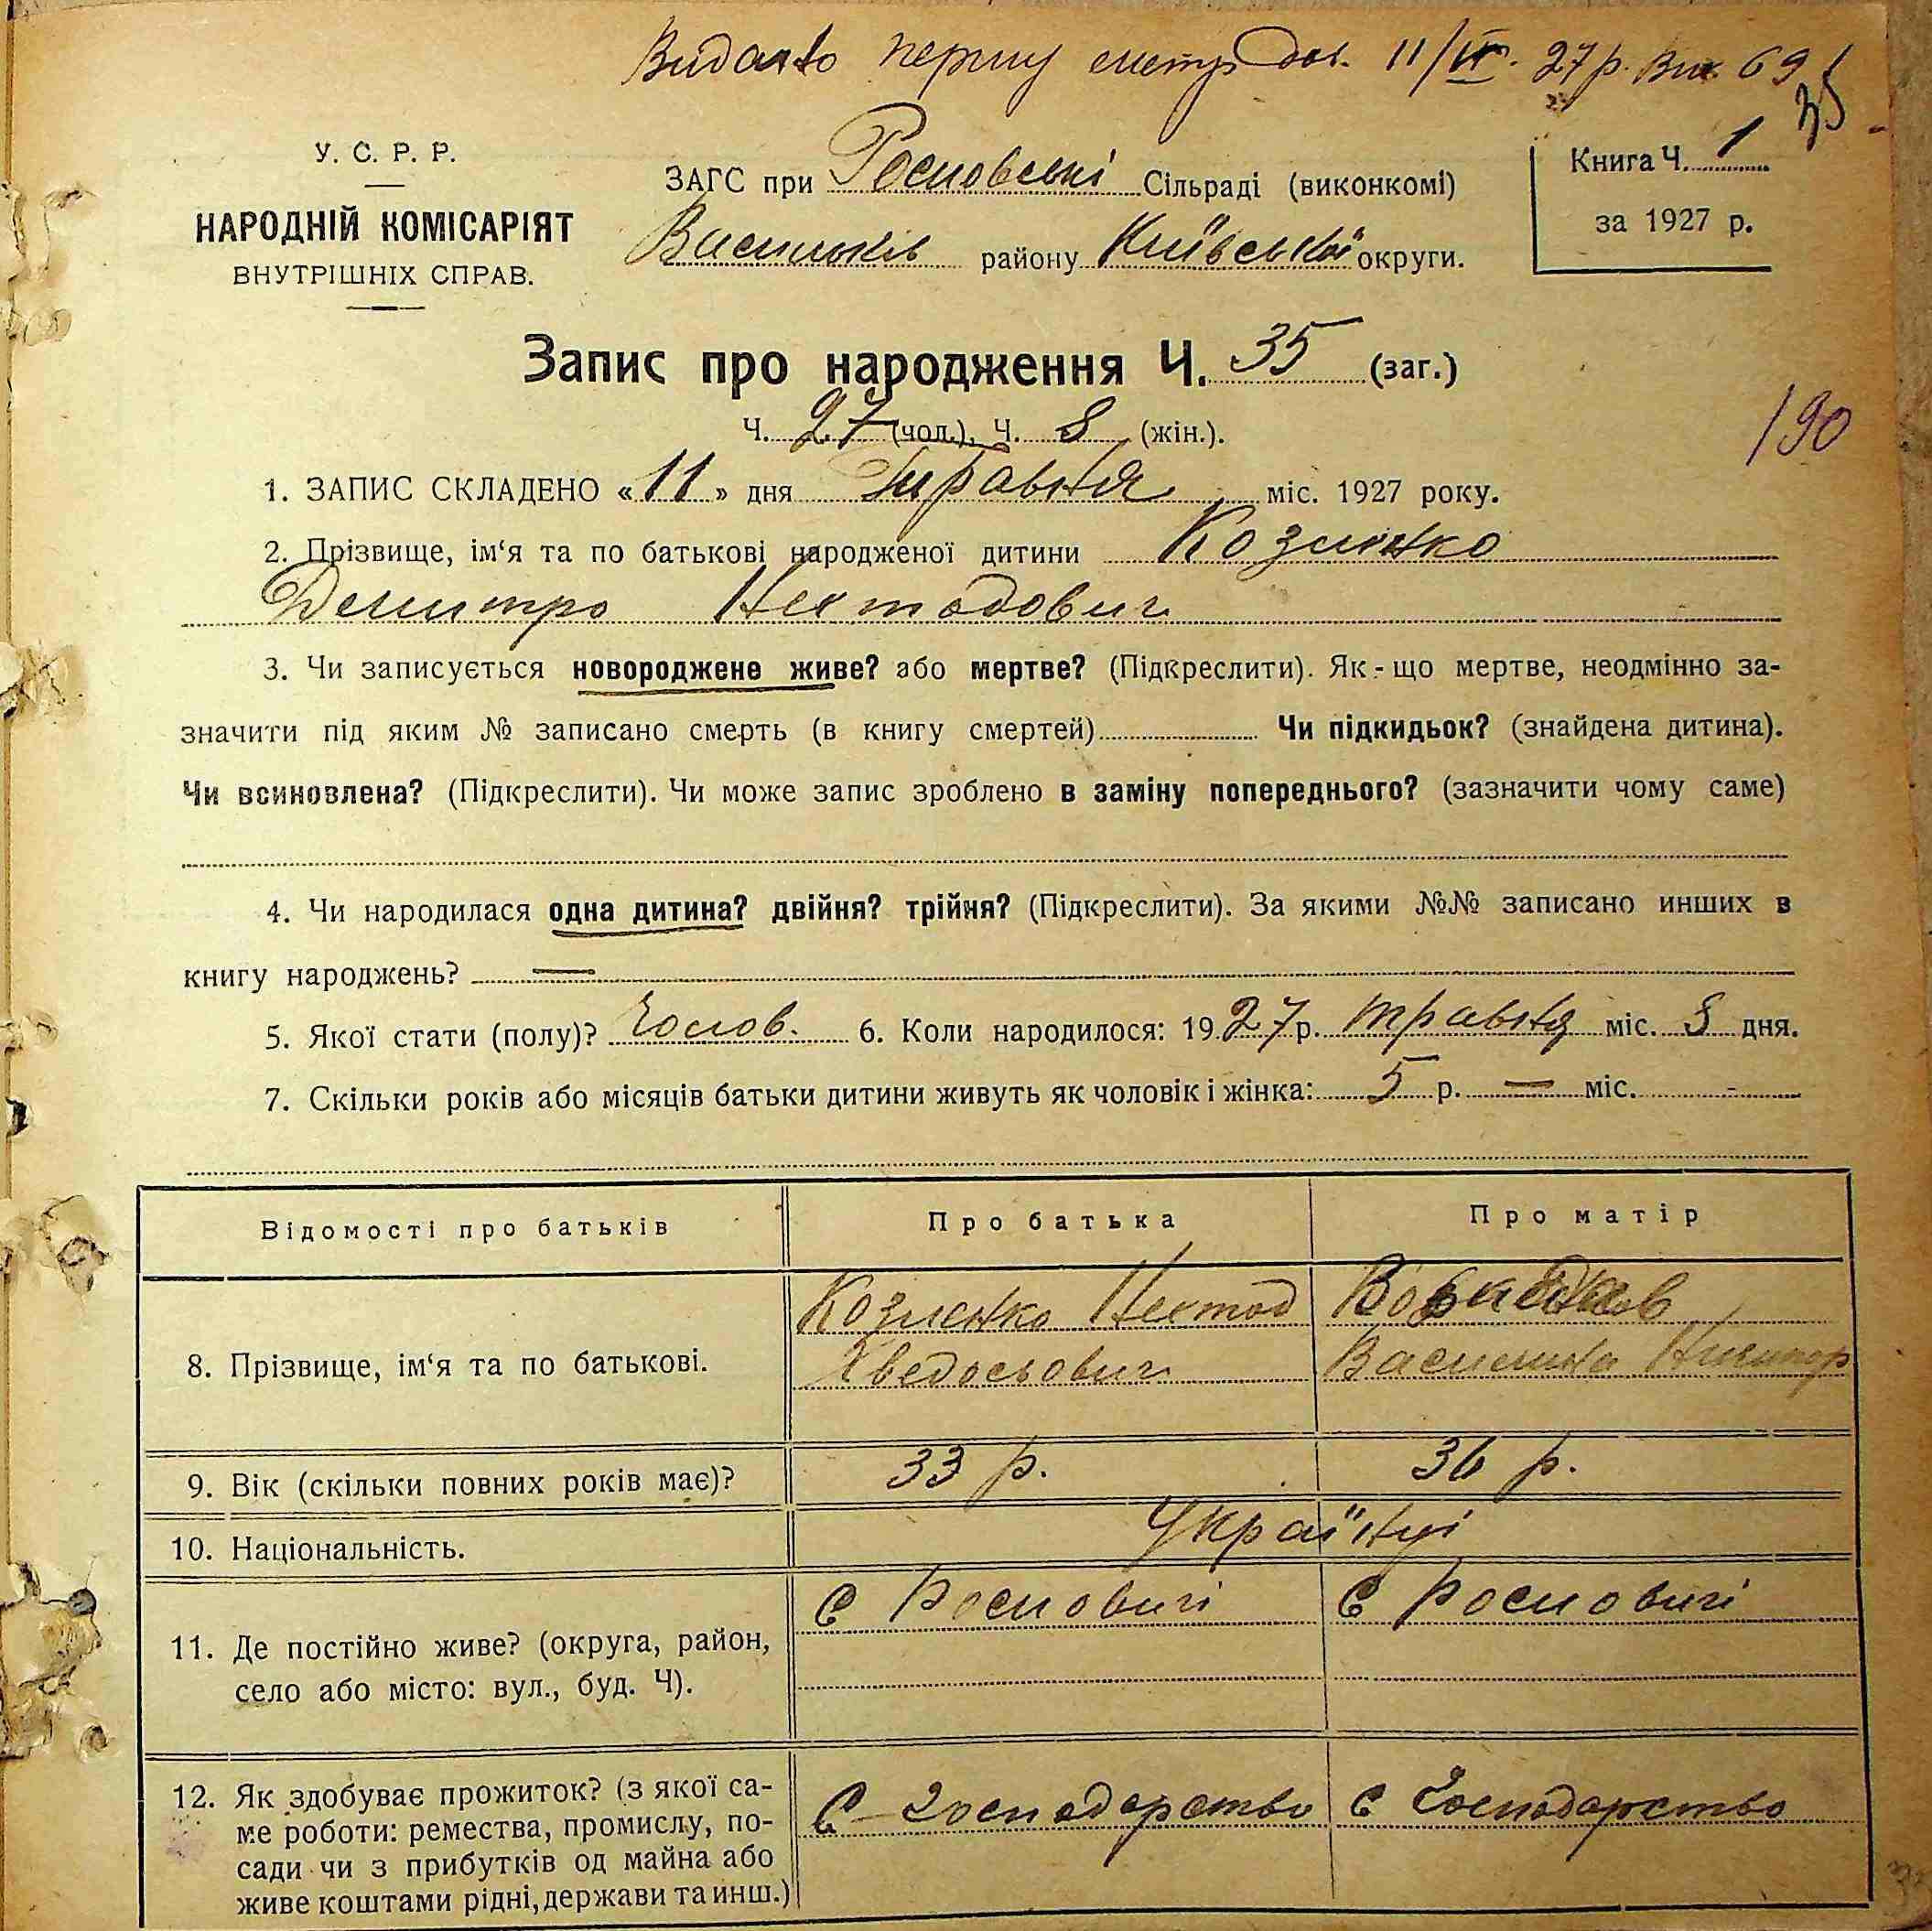 Видано першу 11/VI. 27 р. 69
35
У. С. Р. Р.
НАРОДНІЙ КОМІСАРІЯТ
ВНУТРІШНІХ СПРАВ.
ЗАГС при Росновські Сільраді (виконкомі)
Васильків району Київської округи.
Книга Ч. 1
за 1927 р.
Запис про народження Ч. 35 (заг.)
Ч. 27 (чол.), Ч. 8 (жін.).
190
1. ЗАПИС СКЛАДЕНО «11» дня Травня міс. 1927 року.
2. Прізвище, ім‘я та по батькові народженої дитини Козленко
Демитро Нехтодович
3. Чи записується новороджене живе? або мертве? (Підкреслити). Як-що мертве, неодмінно за-
значити під яким № записано смерть (в книгу смертей) Чи підкидьок? (знайдена дитина).
Чи всиновлена? (Підкреслити). Чи може запис зроблено в заміну попереднього? (зазначити чому саме)
4. Чи народилася одна дитина? двійня? трійня? (Підкреслити). За якими №№ записано инших в
книгу народжень? —
5. Якої стати (полу)? Чолов. 6. Коли народилося: 1927 р. травня міс. 8 дня.
7. Скільки років або місяців батьки дитини живуть як чоловік і жінка: 5 р. — міс.
Відомості про батьків
Про батька
Про матір
8. Прізвище, ім‘я та по батькові.
Козленко Нехтод
Хведосьович
Василина Ничипор
9. Вік (скільки повних років має)?
33 р.
36 р.
10. Національність.
Українці
11. Де постійно живе? (округа, район,
село або місто: вул., буд. Ч).
С Росновичі
С Росновичі
12. Як здобуває прожиток? (з якої са-
ме роботи: ремества, промислу, по-
сади чи з прибутків од майна або
живе коштами рідні, держави та инш.)
С-господарство
С Господарство